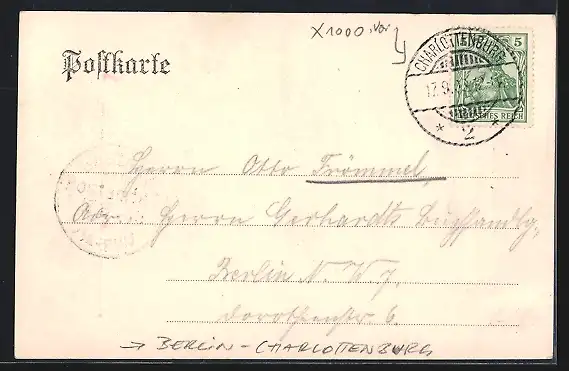 X1000, Vor
Postkarte
CHARLOTTENBURG
17.9.
* 2 *
5
DEUTSCHES REICH
Herrn Otto Frömmel,
Adr. Herrn Gerhardts Buchhandlg,
Berlin N. W. 7.
Dorotheenstr 6.
→ BERLIN-CHARLOTTENBURG